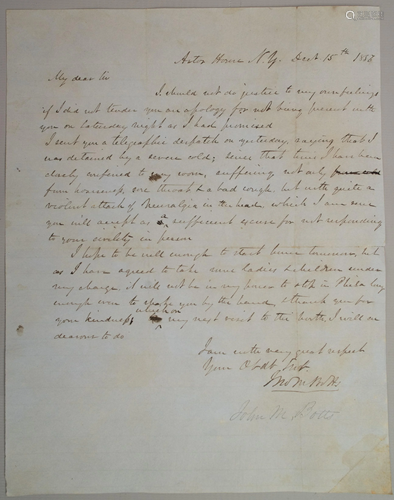 Astor House N.Y. Dect 15th 1853
My dear Sir
I should not do justice to my own feelings
if I did not tender you an apology for not being present with
you on Saturday night as I had promised
I sent you a telegraphic despatch on yesterday, saying that I
was detained by a severe cold; since that time I have been
closely confined to my room, suffering not only
from hoarseness, sore throat & a bad cough, but with quite a
violent attack of Neuralgia in the head, which I am sure
you will accept as a sufficient excuse for not responding
to your civility in person
I hope to be well enough to start home tomorrow, but
as I have agreed to take some Ladies & children under
my charge it will not be in my power to stop in Phila long
enough even to shake you by the hand, & thank you for
your kindness, which on my next visit to the north, I will
endeavor to do
I am with very great respect
Your Obdt Svt
Jno M Botts
John M Botts